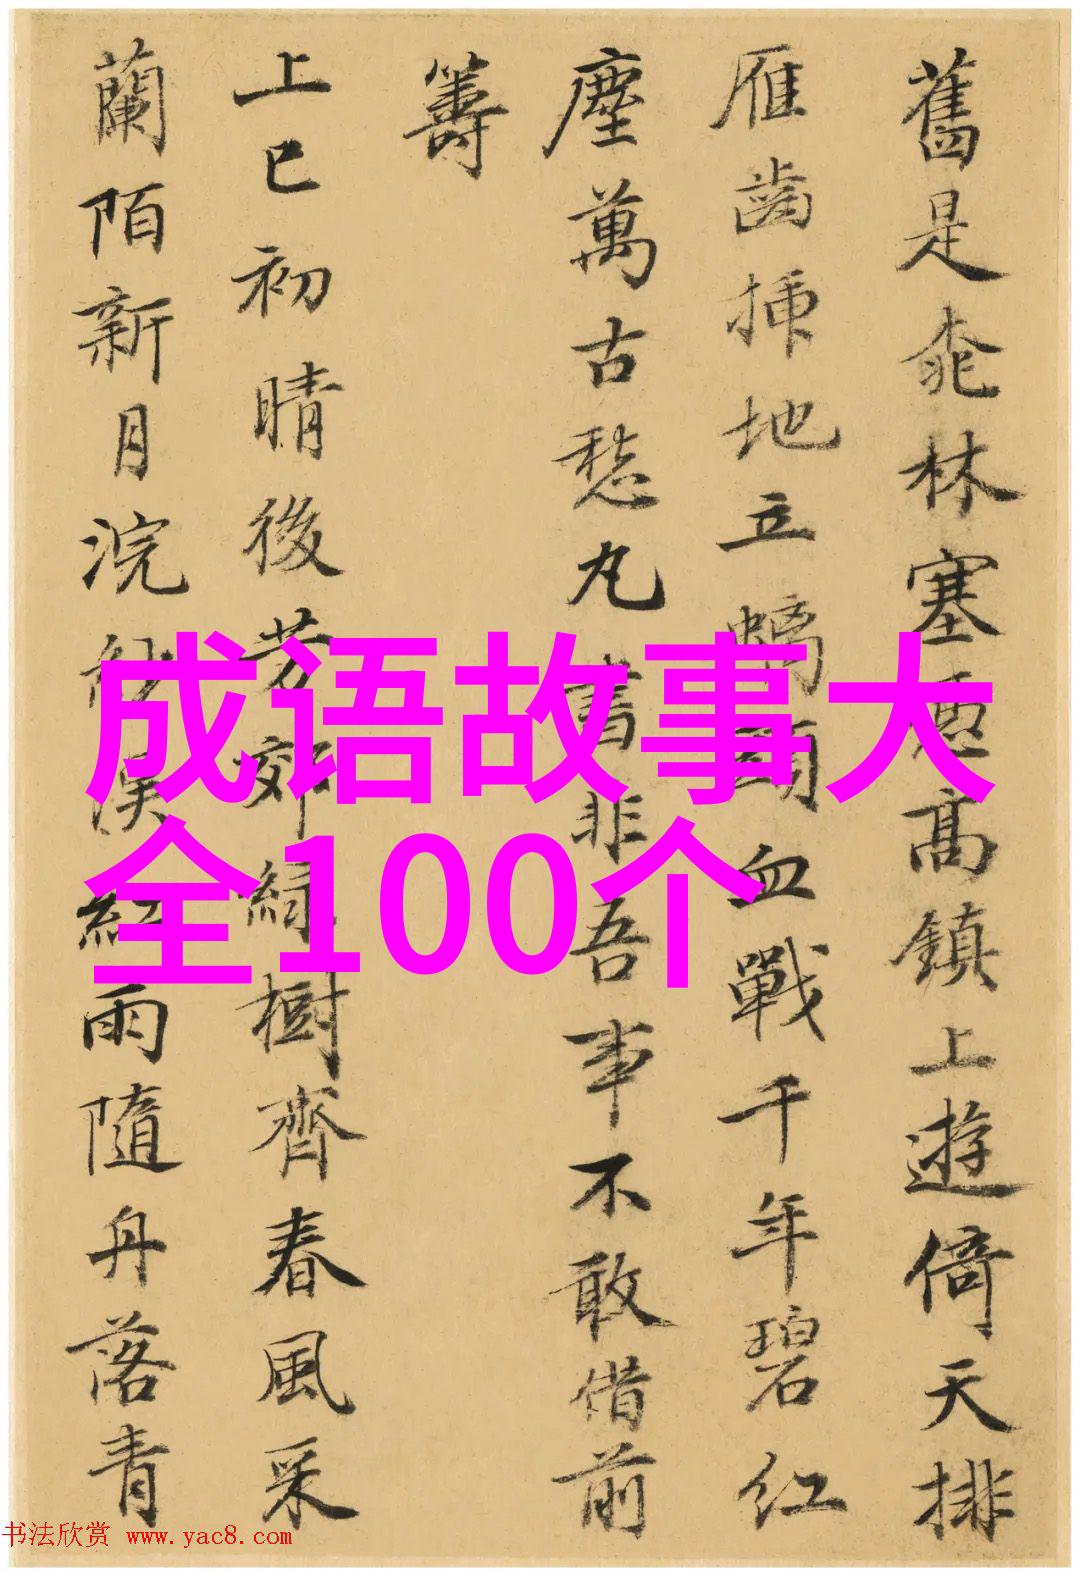 舊是桃林塞更高鎮上遊倚天排
雁齒插地立螭頭血戰千年碧紅
塵萬古愁丸書非吾事不敢借前
籌
上巳初晴後芳郊綠樹齊春風采
蘭陌新月浣紗溪紅雨隨舟落青
成语故事大
全100个
书法欣赏 www.yac8.com